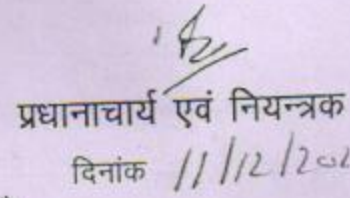 प्रधानाचार्य एवं नियन्त्रक
दिनांक 11/12/202